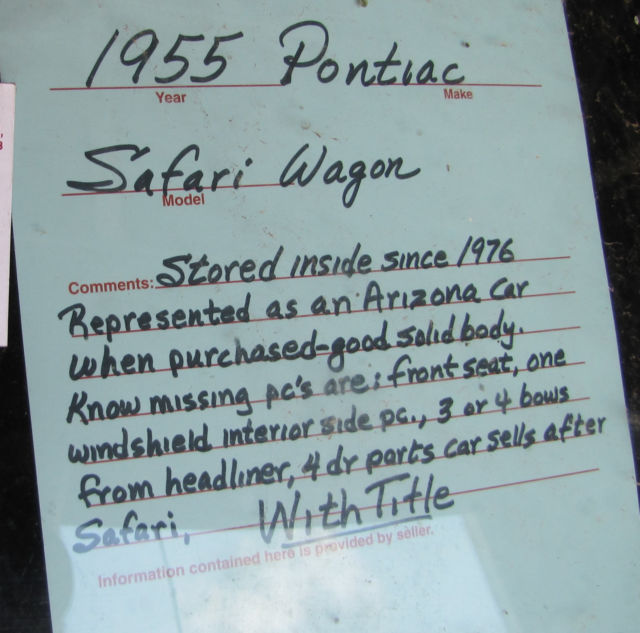 1955 Pontiac
Year Make
Safari Wagon
Model
Comments: Stored inside since 1976
Represented as an Arizona car
when purchased-good solid body.
Know missing pc's are: front seat, one
windshield interior side pc., 3 or 4 bows
from headliner, 4 dr parts car sells after
Safari, With Title
Information contained here is provided by seller.